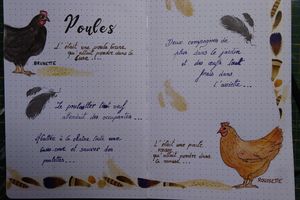 Poules
C'était une poule brune,
qui allait pondre dans la
lune !...
BRUNETTE
Le poulailler tout neuf
attendait ses occupantes...
sauver des
poulettes...
Deux compagnes de
plus dans le jardin
et des œufs tout
frais dans
l'assiette...
C'était une poule
rousse
qui allait pondre dans
la mousse...
ROUSSETTE